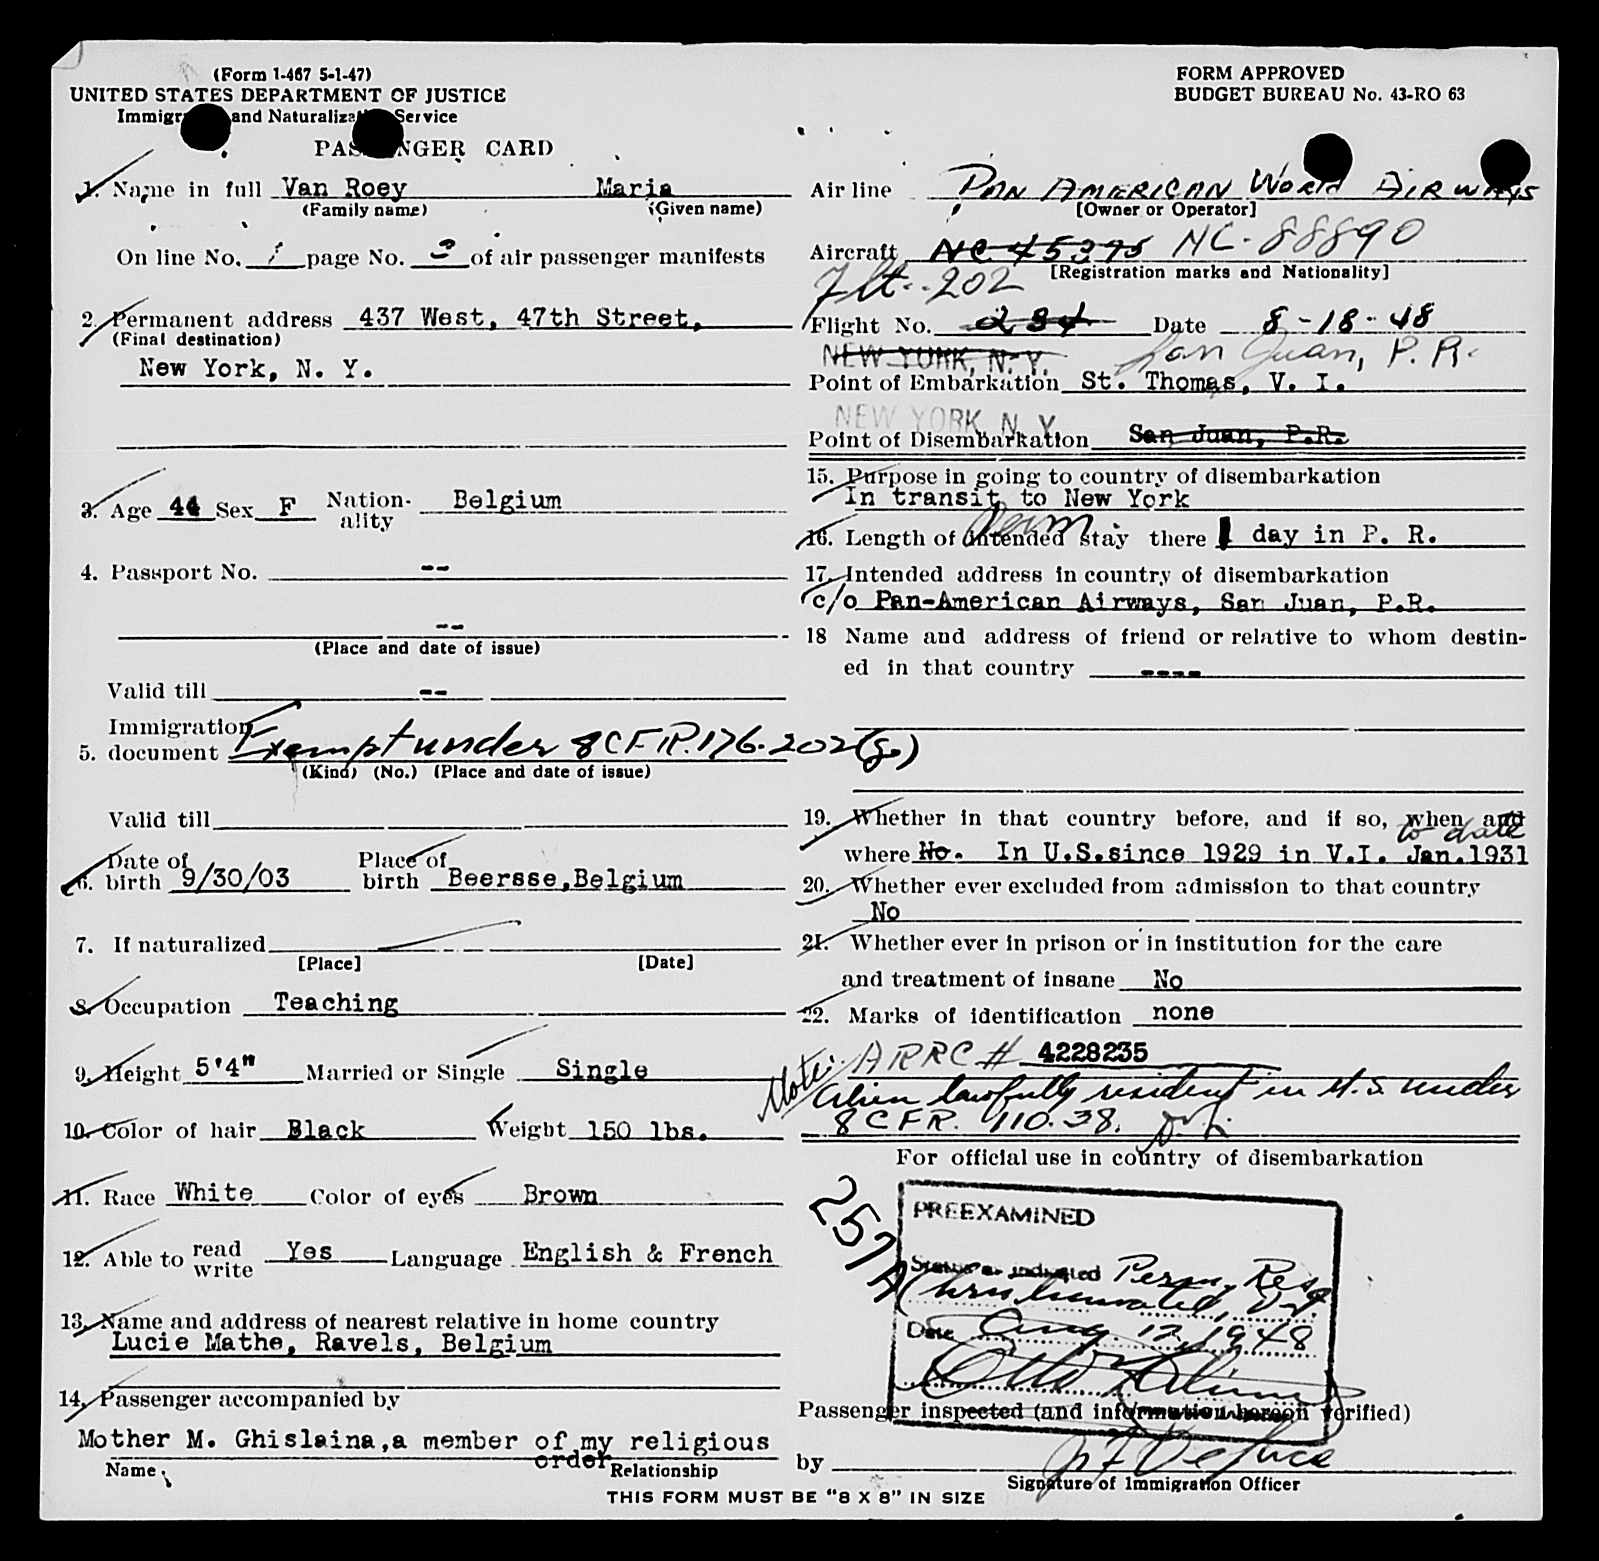 (Form 1-467 5-1-47)
UNITED STATES DEPARTMENT OF JUSTICE
Immigr and Naturaliza Service
PAS NGER CARD
1. Name in full Van Roey Maria
(Family name) (Given name)
On line No. 1 page No. 3 of air passenger manifests
2. Permanent address 437 West, 47th Street,
(Final destination)
New York, N. Y.
3. Age 44 Sex F Nation-ality Belgium
4. Passport No. --
--
(Place and date of issue)
Valid till --
Immigration
5. document Exempt under 8 CFR. 176.202(g)
(Kind) (No.) (Place and date of issue)
Valid till
6. Date of birth 9/30/03 Place of birth Beersse, Belgium
7. If naturalized
[Place] [Date]
8. Occupation Teaching
9. Height 5'4" Married or Single Single
10. Color of hair Black Weight 150 lbs.
11. Race White Color of eyes Brown
12. Able to read write Yes Language English & French
13. Name and address of nearest relative in home country
Lucie Mathe, Ravels, Belgium
14. Passenger accompanied by
Mother M. Ghislaina, a member of my religious
order
Name Relationship
FORM APPROVED
BUDGET BUREAU No. 43-RO 63
Air line PAN AMERICAN WORLD AIRWAYS
[Owner or Operator]
Aircraft NC 45375 NC-88890
[Registration marks and Nationality]
Flt. 202
Flight No. 234 Date 8-18-48
NEW YORK, N. Y. San Juan, P. R.
Point of Embarkation St. Thomas, V. I.
NEW YORK, N. Y.
Point of Disembarkation San Juan, P.R.
15. Purpose in going to country of disembarkation
In transit to New York
Perm
16. Length of intended stay there 1 day in P. R.
17. Intended address in country of disembarkation
c/o Pan-American Airways, San Juan, P.R.
18 Name and address of friend or relative to whom destin-
ed in that country ----
19. Whether in that country before, and if so, when and
to date
where No. In U.S. since 1929 in V.I. Jan. 1931
20. Whether ever excluded from admission to that country
No
21. Whether ever in prison or in institution for the care
and treatment of insane No
22. Marks of identification none
Note: ARRC # 4228235
Alien lawfully resident in U.S. under
8 CFR. 110.38.
For official use in country of disembarkation
257A
PREEXAMINED
Status as indicated Perm. Res.
Date Aug. 12, 1948
Passenger inspected (and information hereon verified)
by
Signature of Immigration Officer
THIS FORM MUST BE "8 X 8" IN SIZE